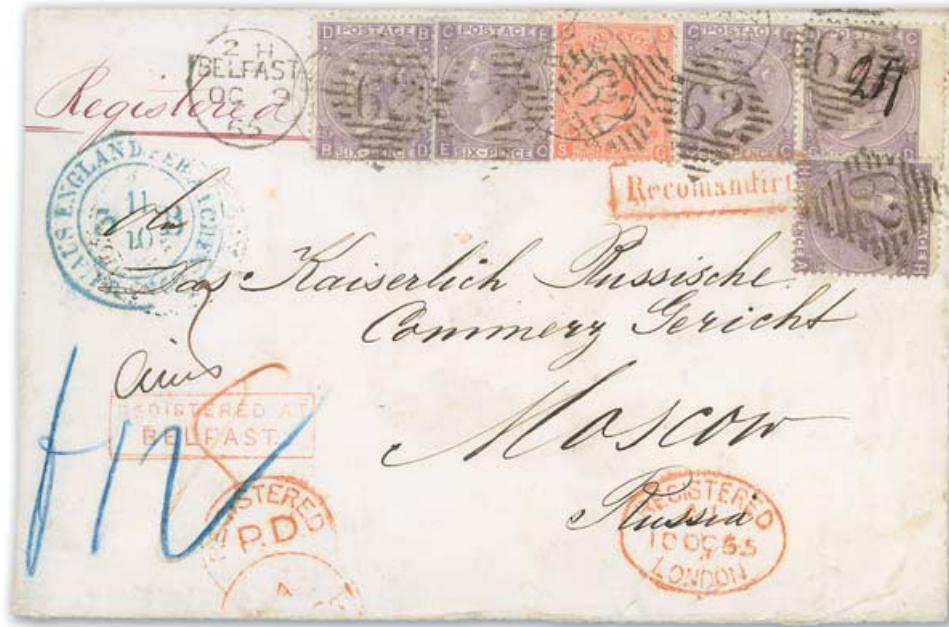 2 H
BELFAST
OC 9
65
Registered
D POSTAGE B
B SIX-PENCE D
C POSTAGE E
E SIX-PENCE C
S
S G
C POSTAGE
62
62
62
62
Recomandirt
AUS ENGLAND PER AACHEN
11
10
An
Das Kaiserlich Russische
Commerz Gericht
Moscow
Russia
REGISTERED AT
BELFAST
REGISTERED
P.D
A
REGISTERED
10 OC 65
LONDON